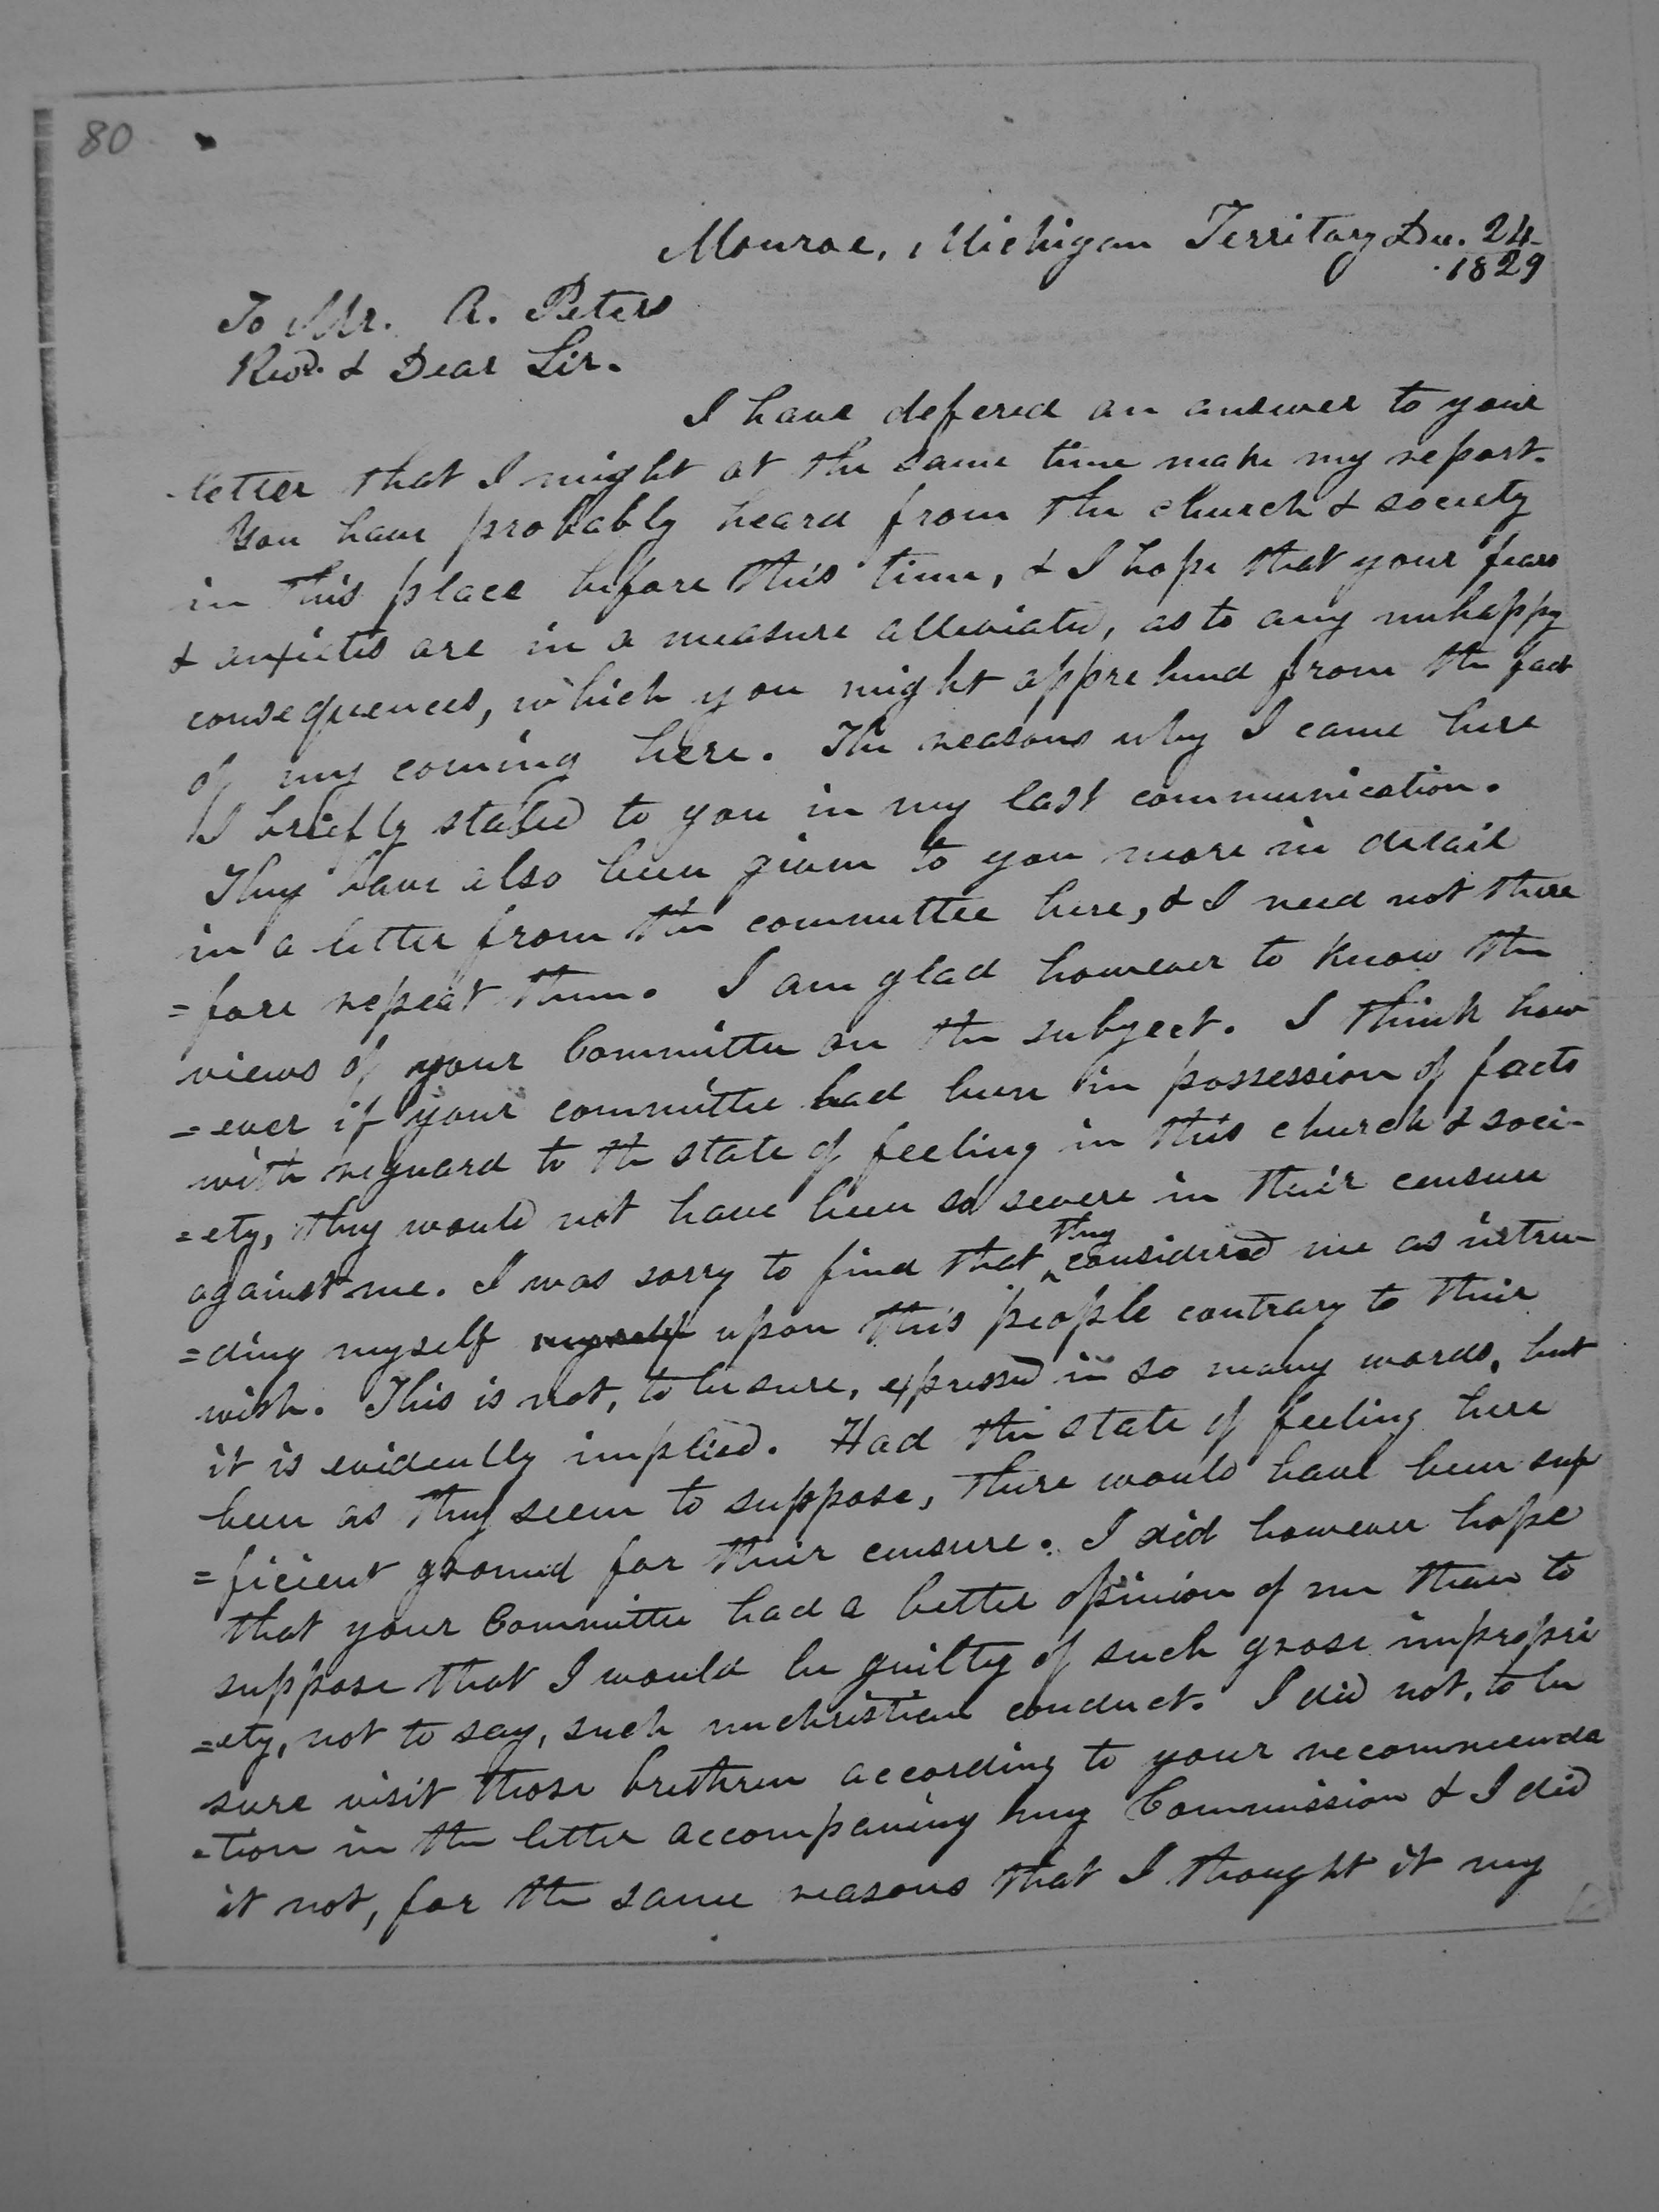 80
Monroe, Michigan Territory Dec. 24
1829
To Mr. A. Peters
Revd. & Dear Sir.
I have defered an answer to your
letter that I might at the same time make my report.
You have probably heard from the church & society
in this place before this time, & I hope that your fears
& anxieties are in a measure alleviated, as to any unhappy
consequences, which you might apprehend from the fact
of my coming here. The reasons why I came here
I briefly stated to you in my last communication.
They have also been given to you more in detail
in a letter from the committee here, & I need not there
=fore repeat them. I am glad however to know the
views of your Committee on the subject. I think how
=ever if your committee had been in possession of facts
with reguard to the state of feeling in this church & soci-
=ety, they would not have been so severe in their censure
against me. I was sorry to find that they considered me as intru-
=ding myself myself upon this people contrary to their
wish. This is not, to be sure, expressed in so many words, but
it is evidently implied. Had the state of feeling here
been as they seem to suppose, there would have been suf
=ficient ground for their censure. I did however hope
that your Committee had a better opinion of me than to
suppose that I would be guilty of such gross impropri
=ety, not to say, such unchristian conduct. I did not, to be
sure visit those brethren according to your recommenda
=tion in the letter accompaning my Commission & I did
it not, for the same reasons that I thought it my